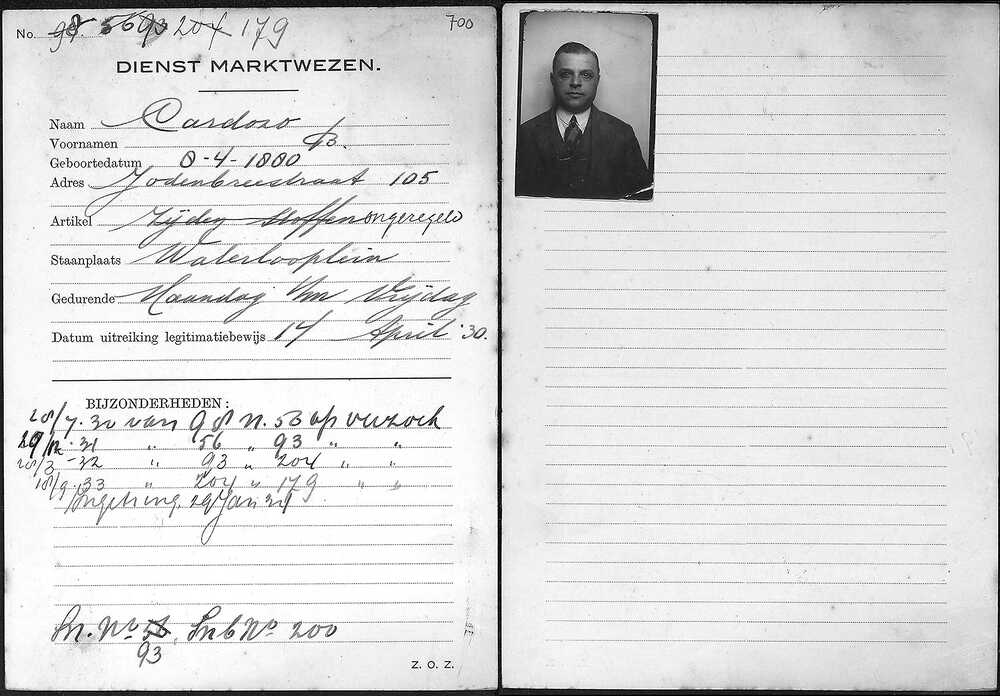 No. 98. 56 93 204 179
700
DIENST MARKTWEZEN.
Naam Cardozo
Voornamen B.
Geboortedatum 8-4-1880
Adres Jodenbreestraat 105
Artikel Zijden stoffen ongeregeld
Staanplaats Waterlooplein
Gedurende Maandag t/m Vrijdag
Datum uitreiking legitimatiebewijs 14 April '30.
BIJZONDERHEDEN:
28/7.30 van 98 n. 56 op verzoek
29/12-31 " 56 " 93 " "
28/3-32 " 93 " 204 " "
18/9.33 " 204 " 179 " "
29 Jan 34
No 56, No 200
93
Z. O. Z.